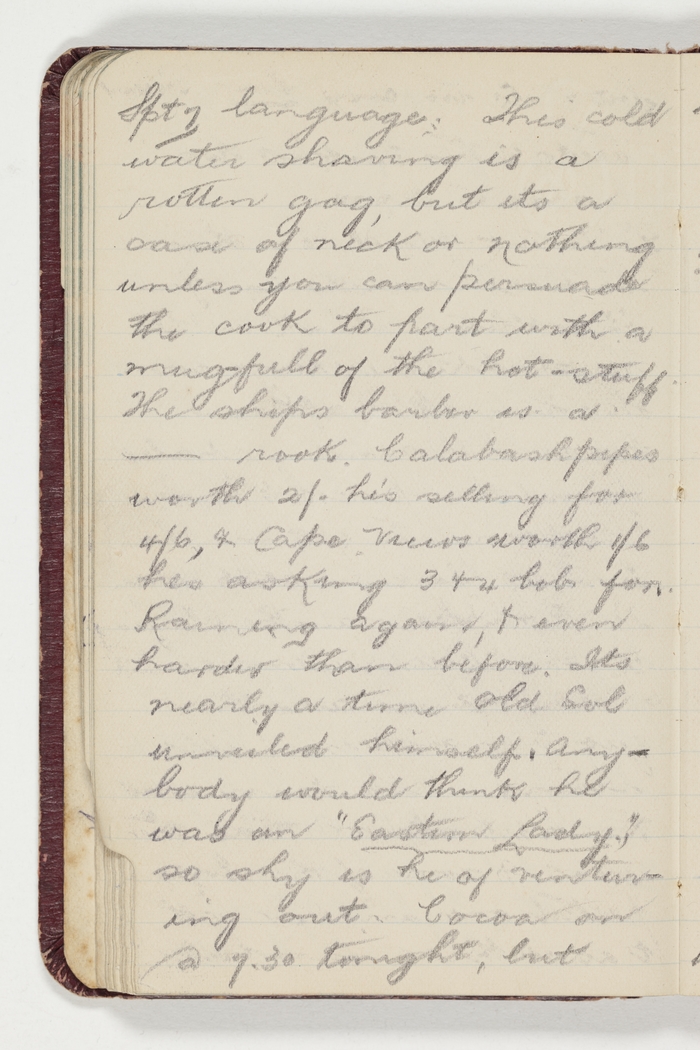 Spt 7 language. This cold
water shaving is a
rotten gag, but its a
case of neck or nothing
unless you can persuade
the cook to part with a
mug-full of the hot-stuff
The ships barber is a
—— rook. Calabash pipes
worth 2/- he's selling for
4/6, & Cape Views worth 1/6
hes asking 3 & 4 bob for.
Raining again, & even
harder than before. Its
nearly a time old Sol
unveiled himself. Any-
body would think he
was an "Eastern Lady",
so shy is he of ventur-
ing out. Cocoa on
a 7.30 tonight, but